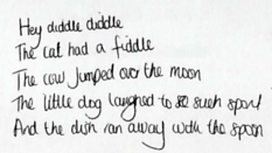 Hey diddle diddle
The cat had a fiddle
The cow jumped over the moon
The little dog laughed to see such sport
And the dish ran away with the spoon